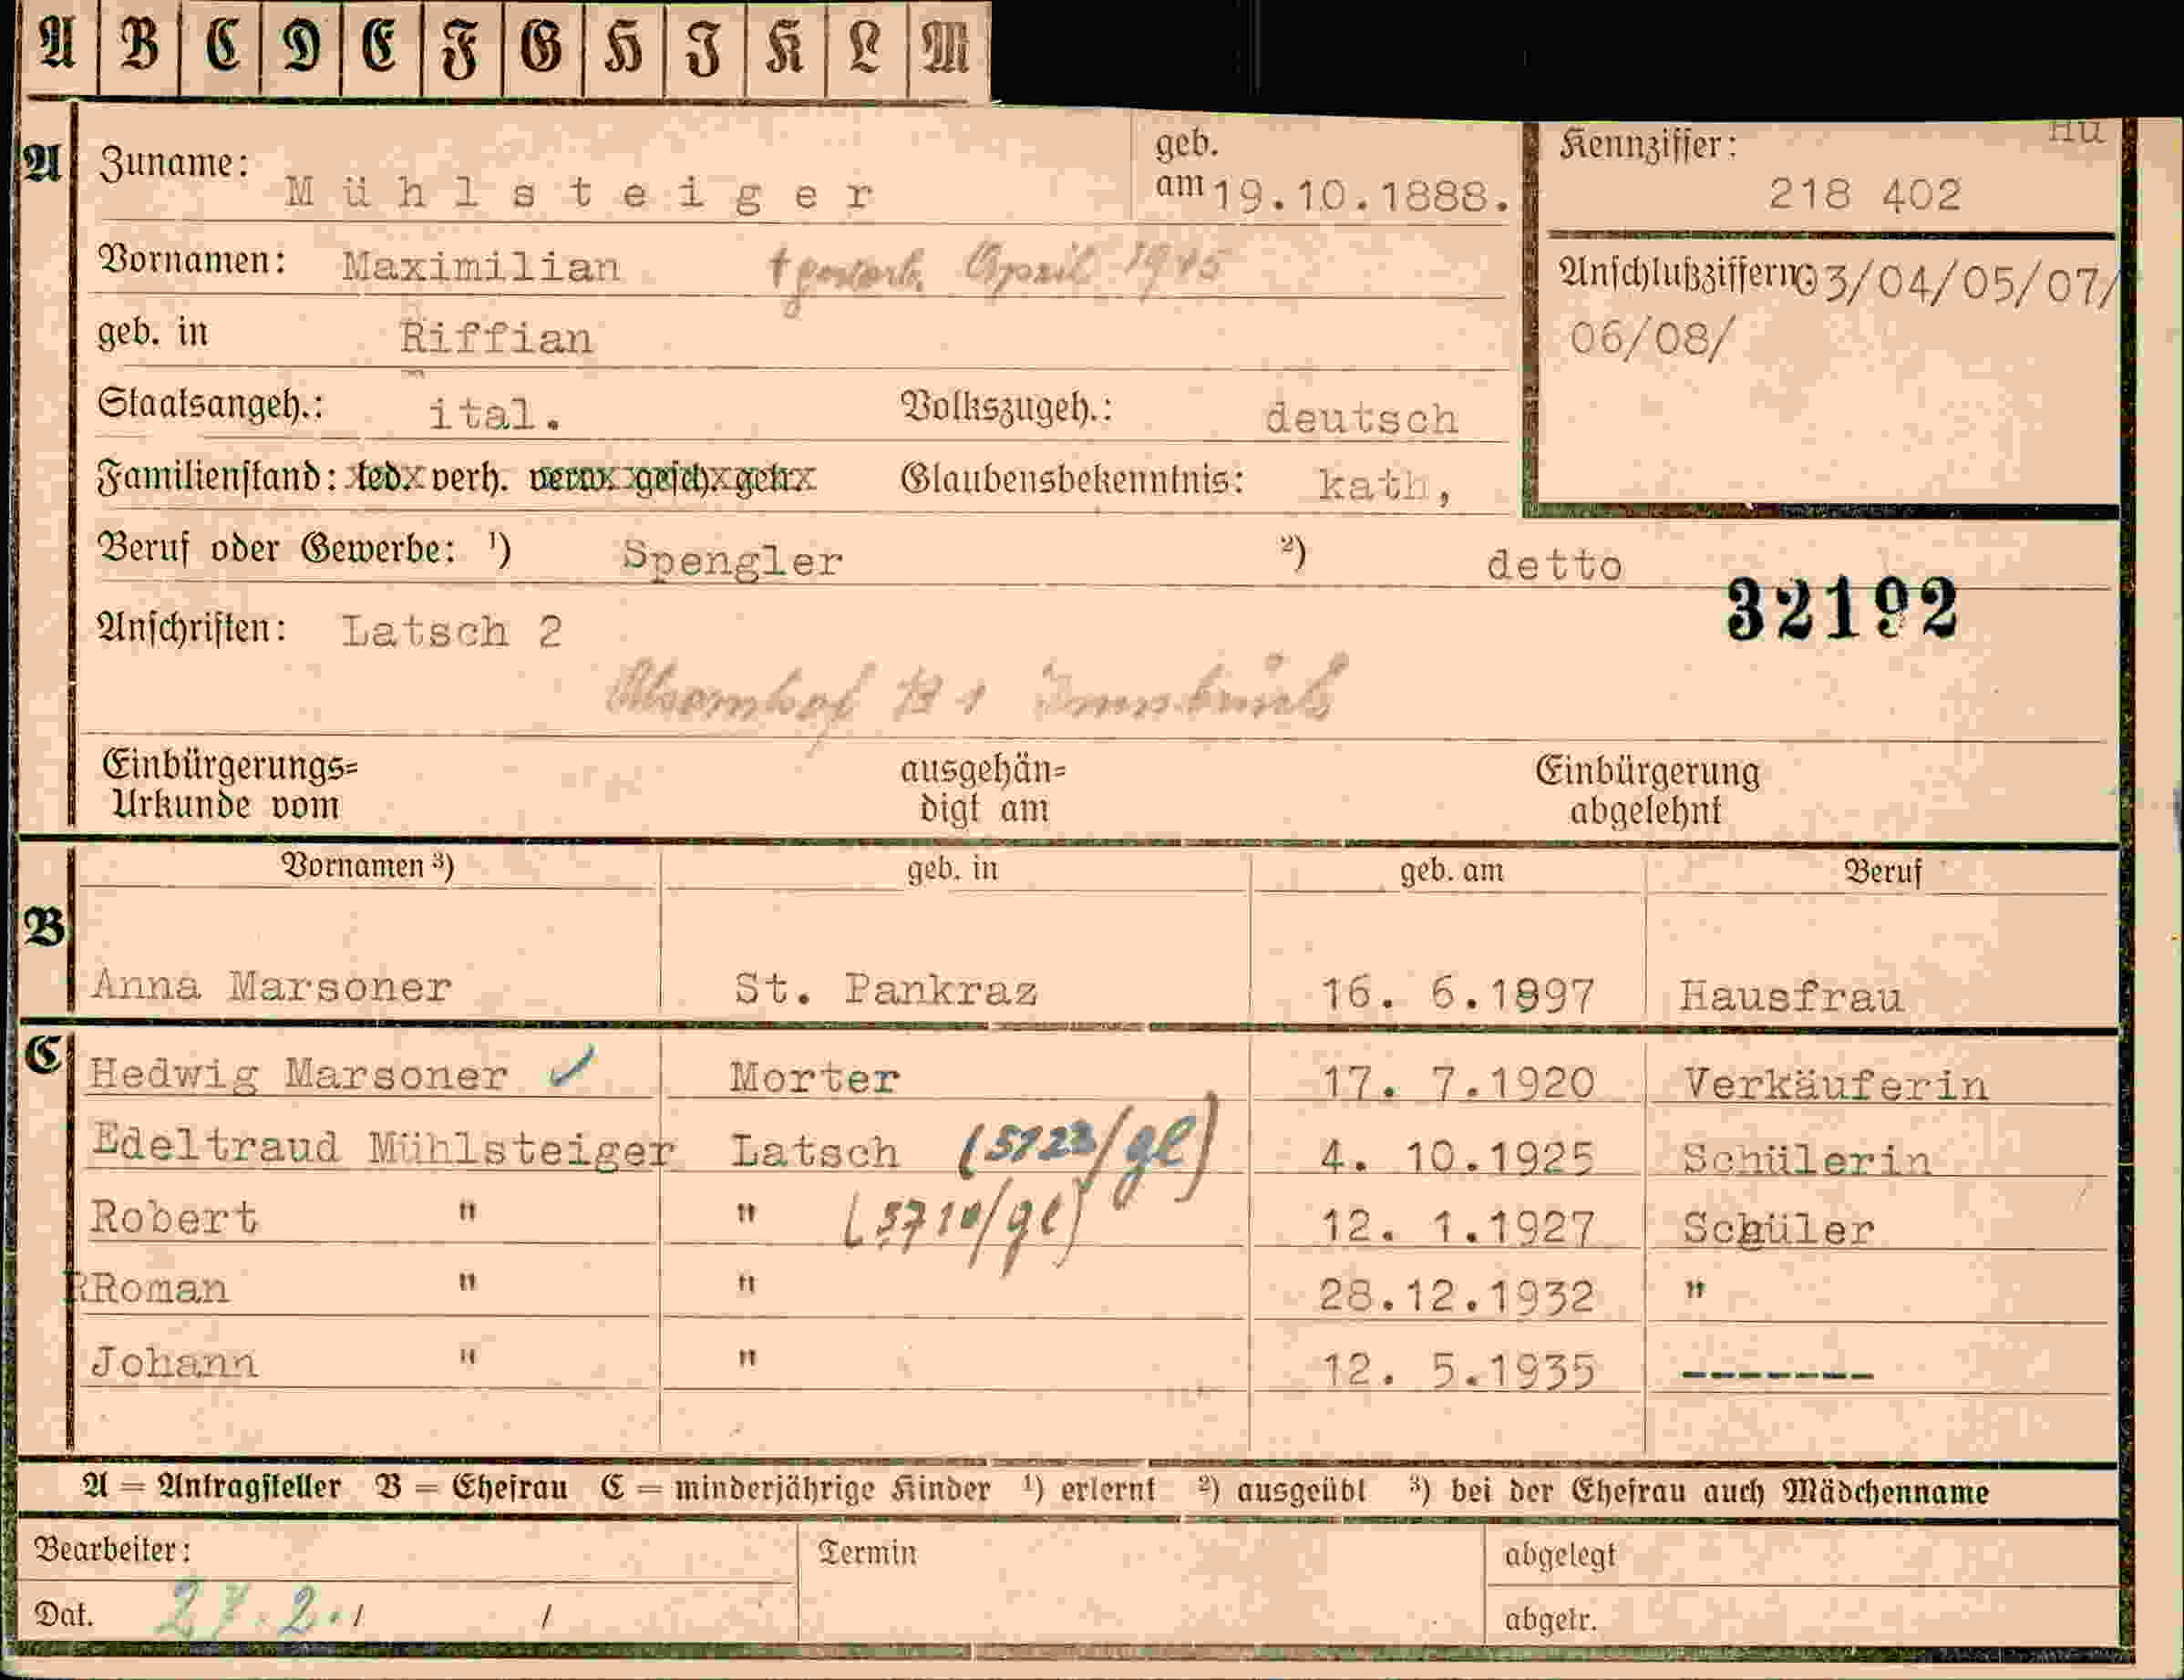 A B C D E F G H I K L M
Hu
A Zuname: Mühlsteiger geb. am 19.10.1888. Kennziffer: 218 402
Vornamen: Maximilian † gestorb. April 1945 Anschlußziffern 03/04/05/07/
06/08/
geb. in Riffian
Staatsangeh.: ital. Volkszugeh.: deutsch
Familienstand: led. verh. verw. gesch. getr. Glaubensbekenntnis: kath,
Beruf oder Gewerbe: ¹) Spengler ²) detto
32192
Anschriften: Latsch 2
Innsbruck
Einbürgerungs= ausgehän= Einbürgerung
Urkunde vom digt am abgelehnt
Vornamen ³) geb. in geb. am Beruf
B Anna Marsoner St. Pankraz 16. 6.1897 Hausfrau
C Hedwig Marsoner ✓ Morter 17. 7.1920 Verkäuferin
Edeltraud Mühlsteiger Latsch 4. 10.1925 Schülerin
Robert " " 12. 1.1927 Schüler
RRoman " " 28.12.1932 "
Johann " " 12. 5.1935 -------
A = Antragsteller B = Ehefrau C = minderjährige Kinder ¹) erlernt ²) ausgeübt ³) bei der Ehefrau auch Mädchenname
Bearbeiter: Termin abgelegt
Dat. 27.2./ / abgetr.